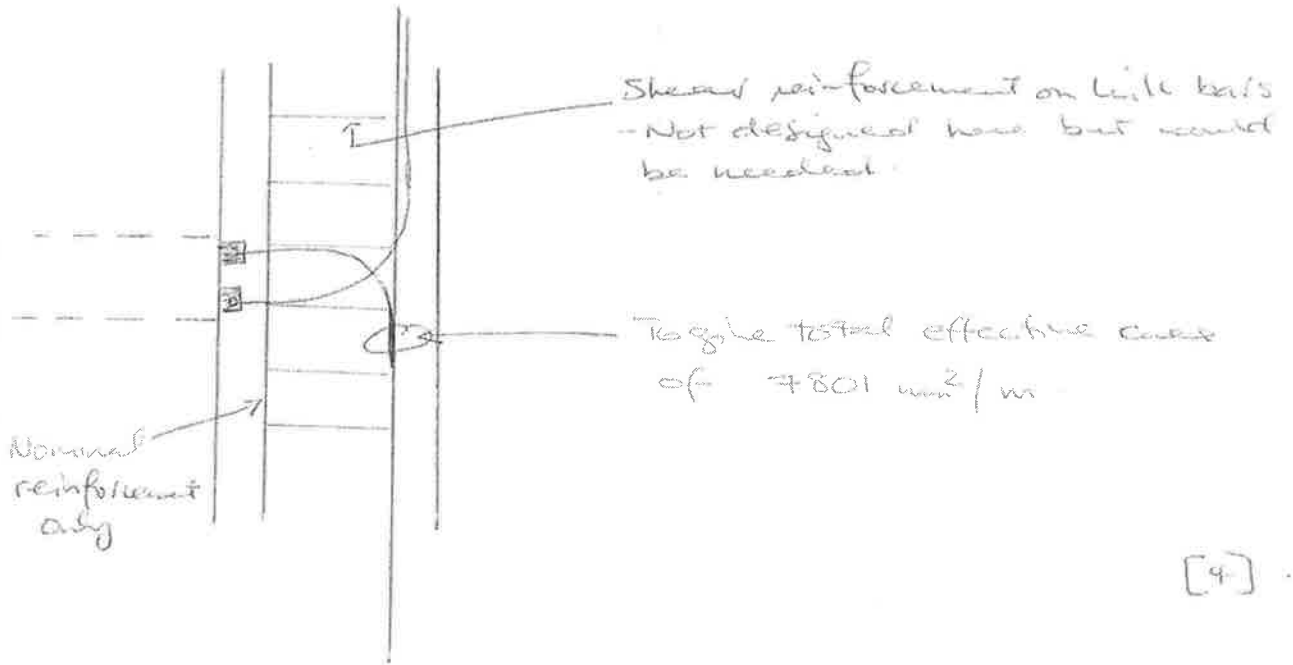 Shear reinforcement on link bars
- Not designed here but would
be needed.
To give total effective
of 7801 mm²/m
Nominal
reinforcement
only
[4].